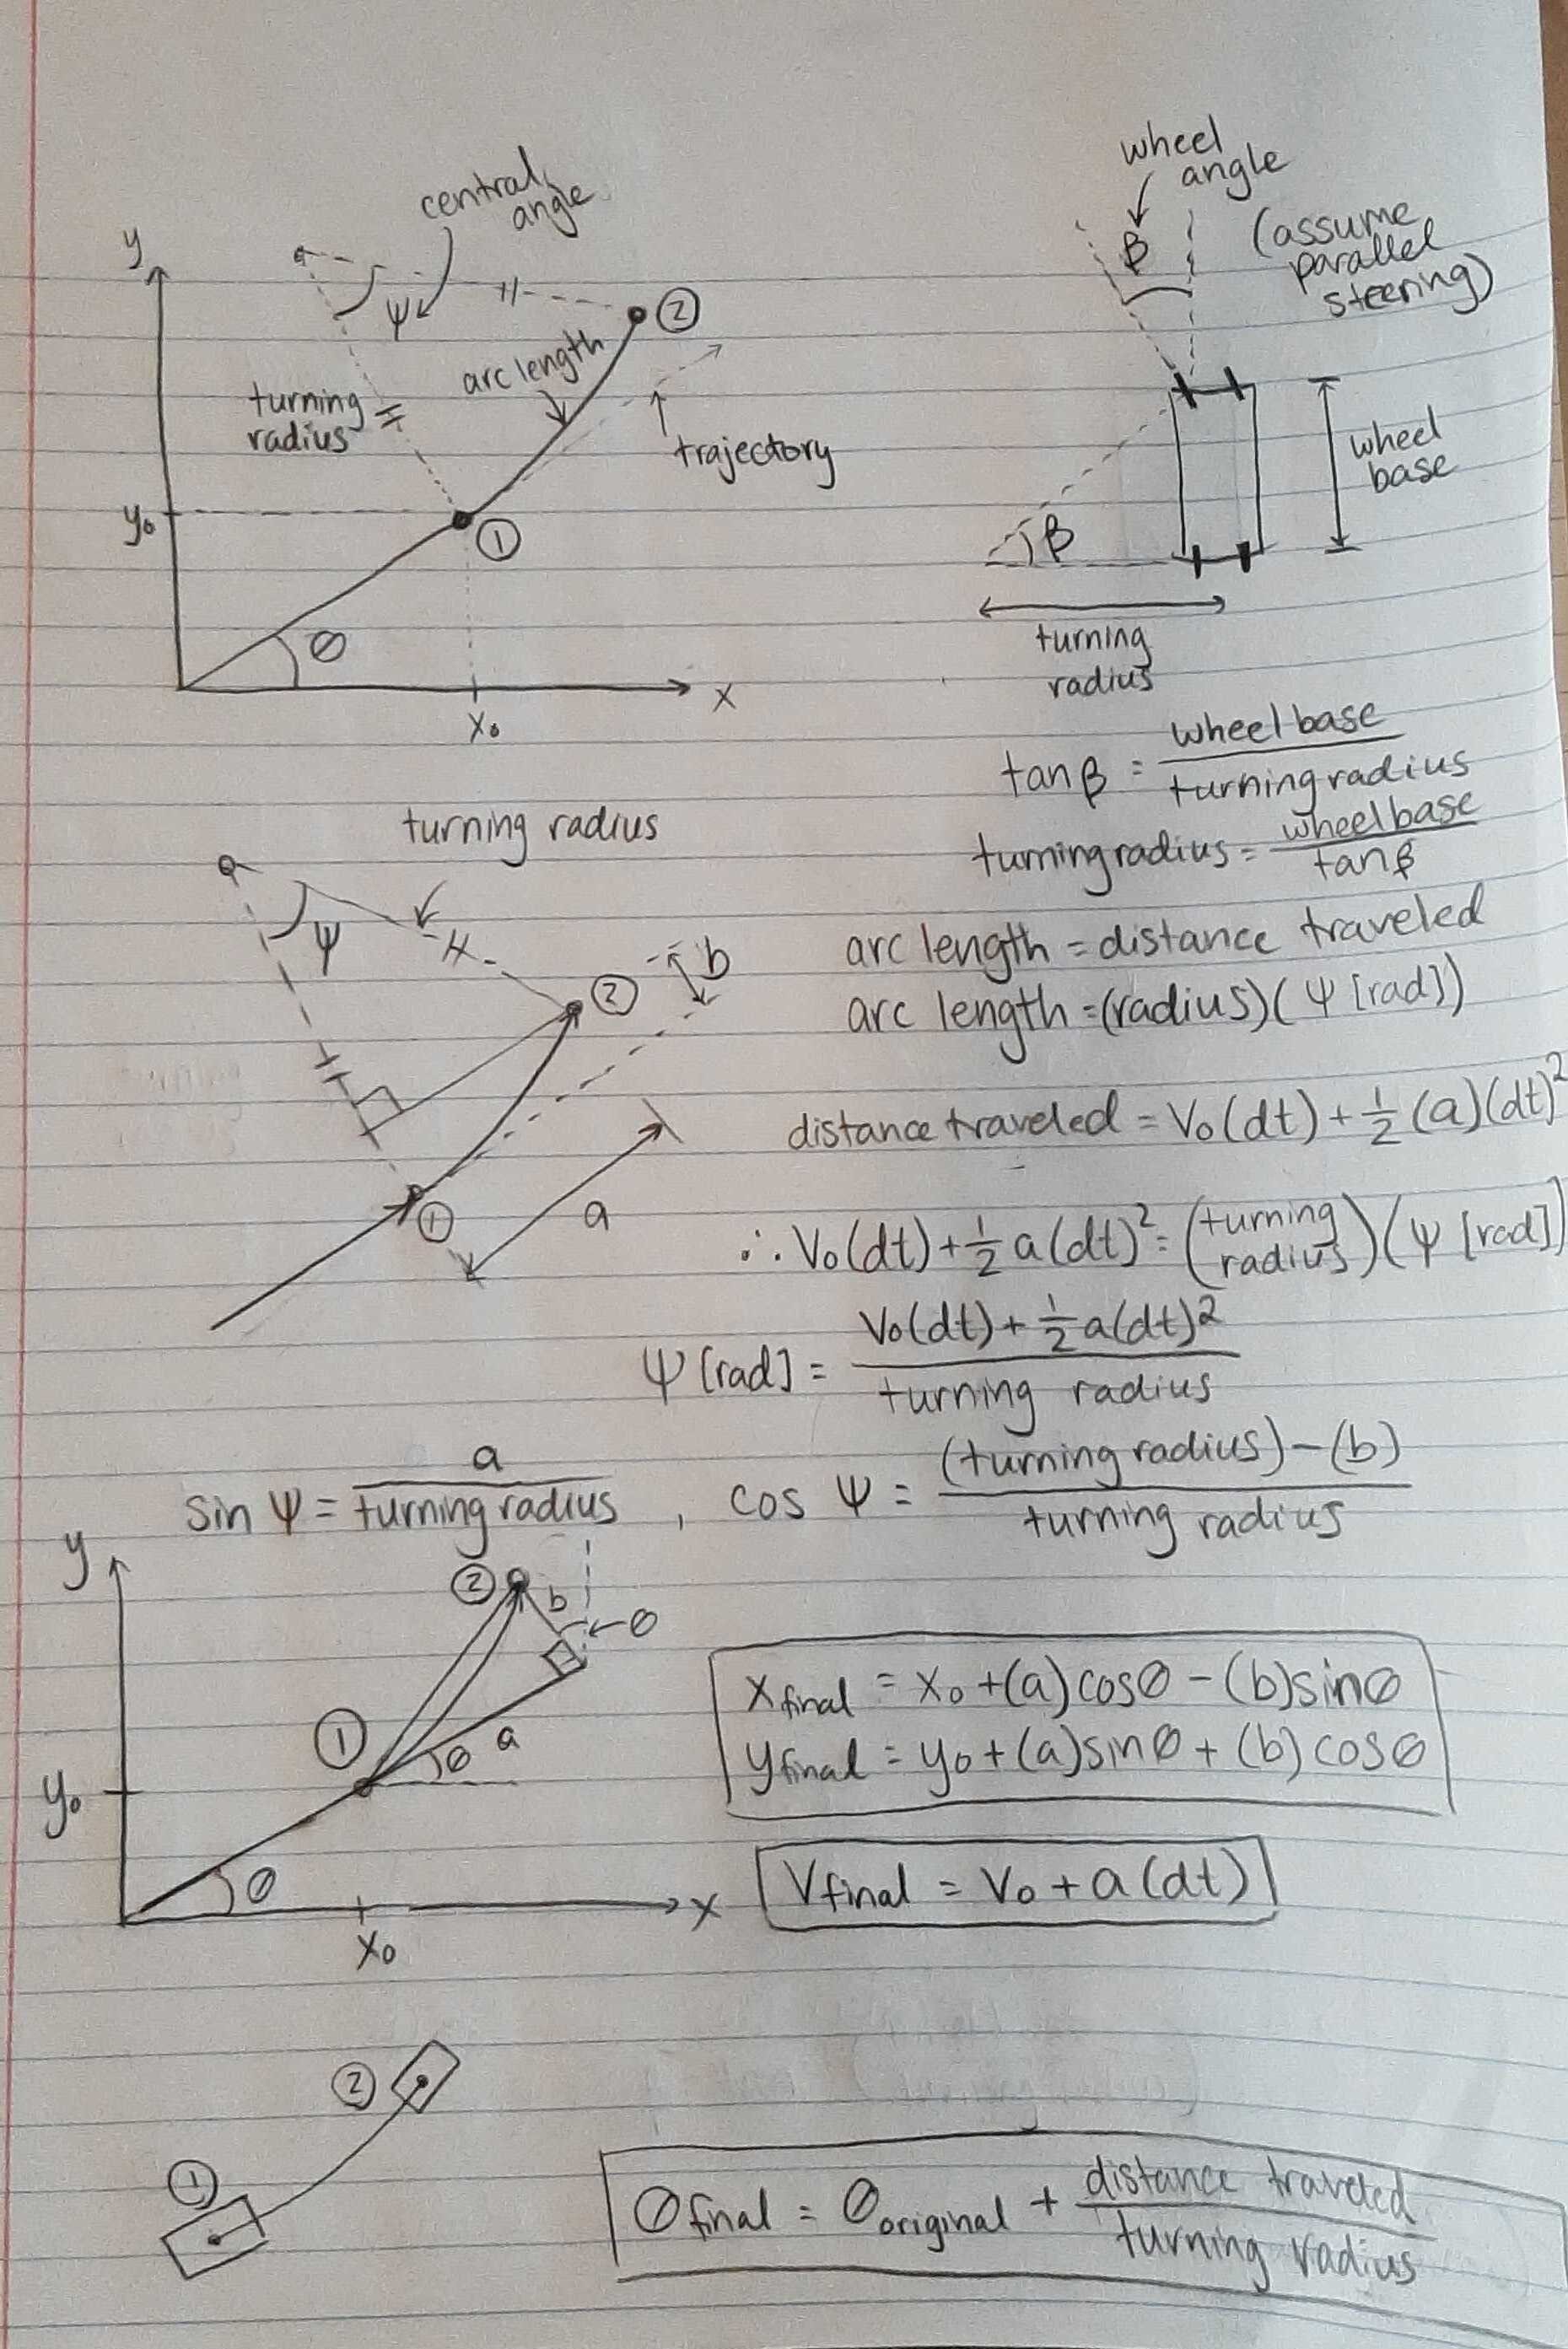 central
angle
y
ψ
②
arc length
turning
radius
trajectory
y₀
①
θ
x₀
x
wheel
angle
β
(assume
parallel
steering)
wheel
base
β
turning
radius
tanβ = wheel base / turning radius
turning radius = wheel base / tanβ
turning radius
ψ
②
b
①
a
arc length = distance traveled
arc length = (radius)(ψ [rad])
distance traveled = V₀(dt) + ½(a)(dt)²
∴ V₀(dt) + ½ a(dt)² = (turning radius)(ψ [rad])
ψ [rad] = V₀(dt) + ½ a(dt)² / turning radius
sin ψ = a / turning radius , cos ψ = (turning radius) − (b) / turning radius
y
②
b
θ
①
θ
a
y₀
θ
x₀
x
X final = X₀ + (a)cosθ − (b)sinθ
y final = y₀ + (a)sinθ + (b)cosθ
V final = V₀ + a(dt)
②
①
θ final = θ original + distance traveled / turning radius